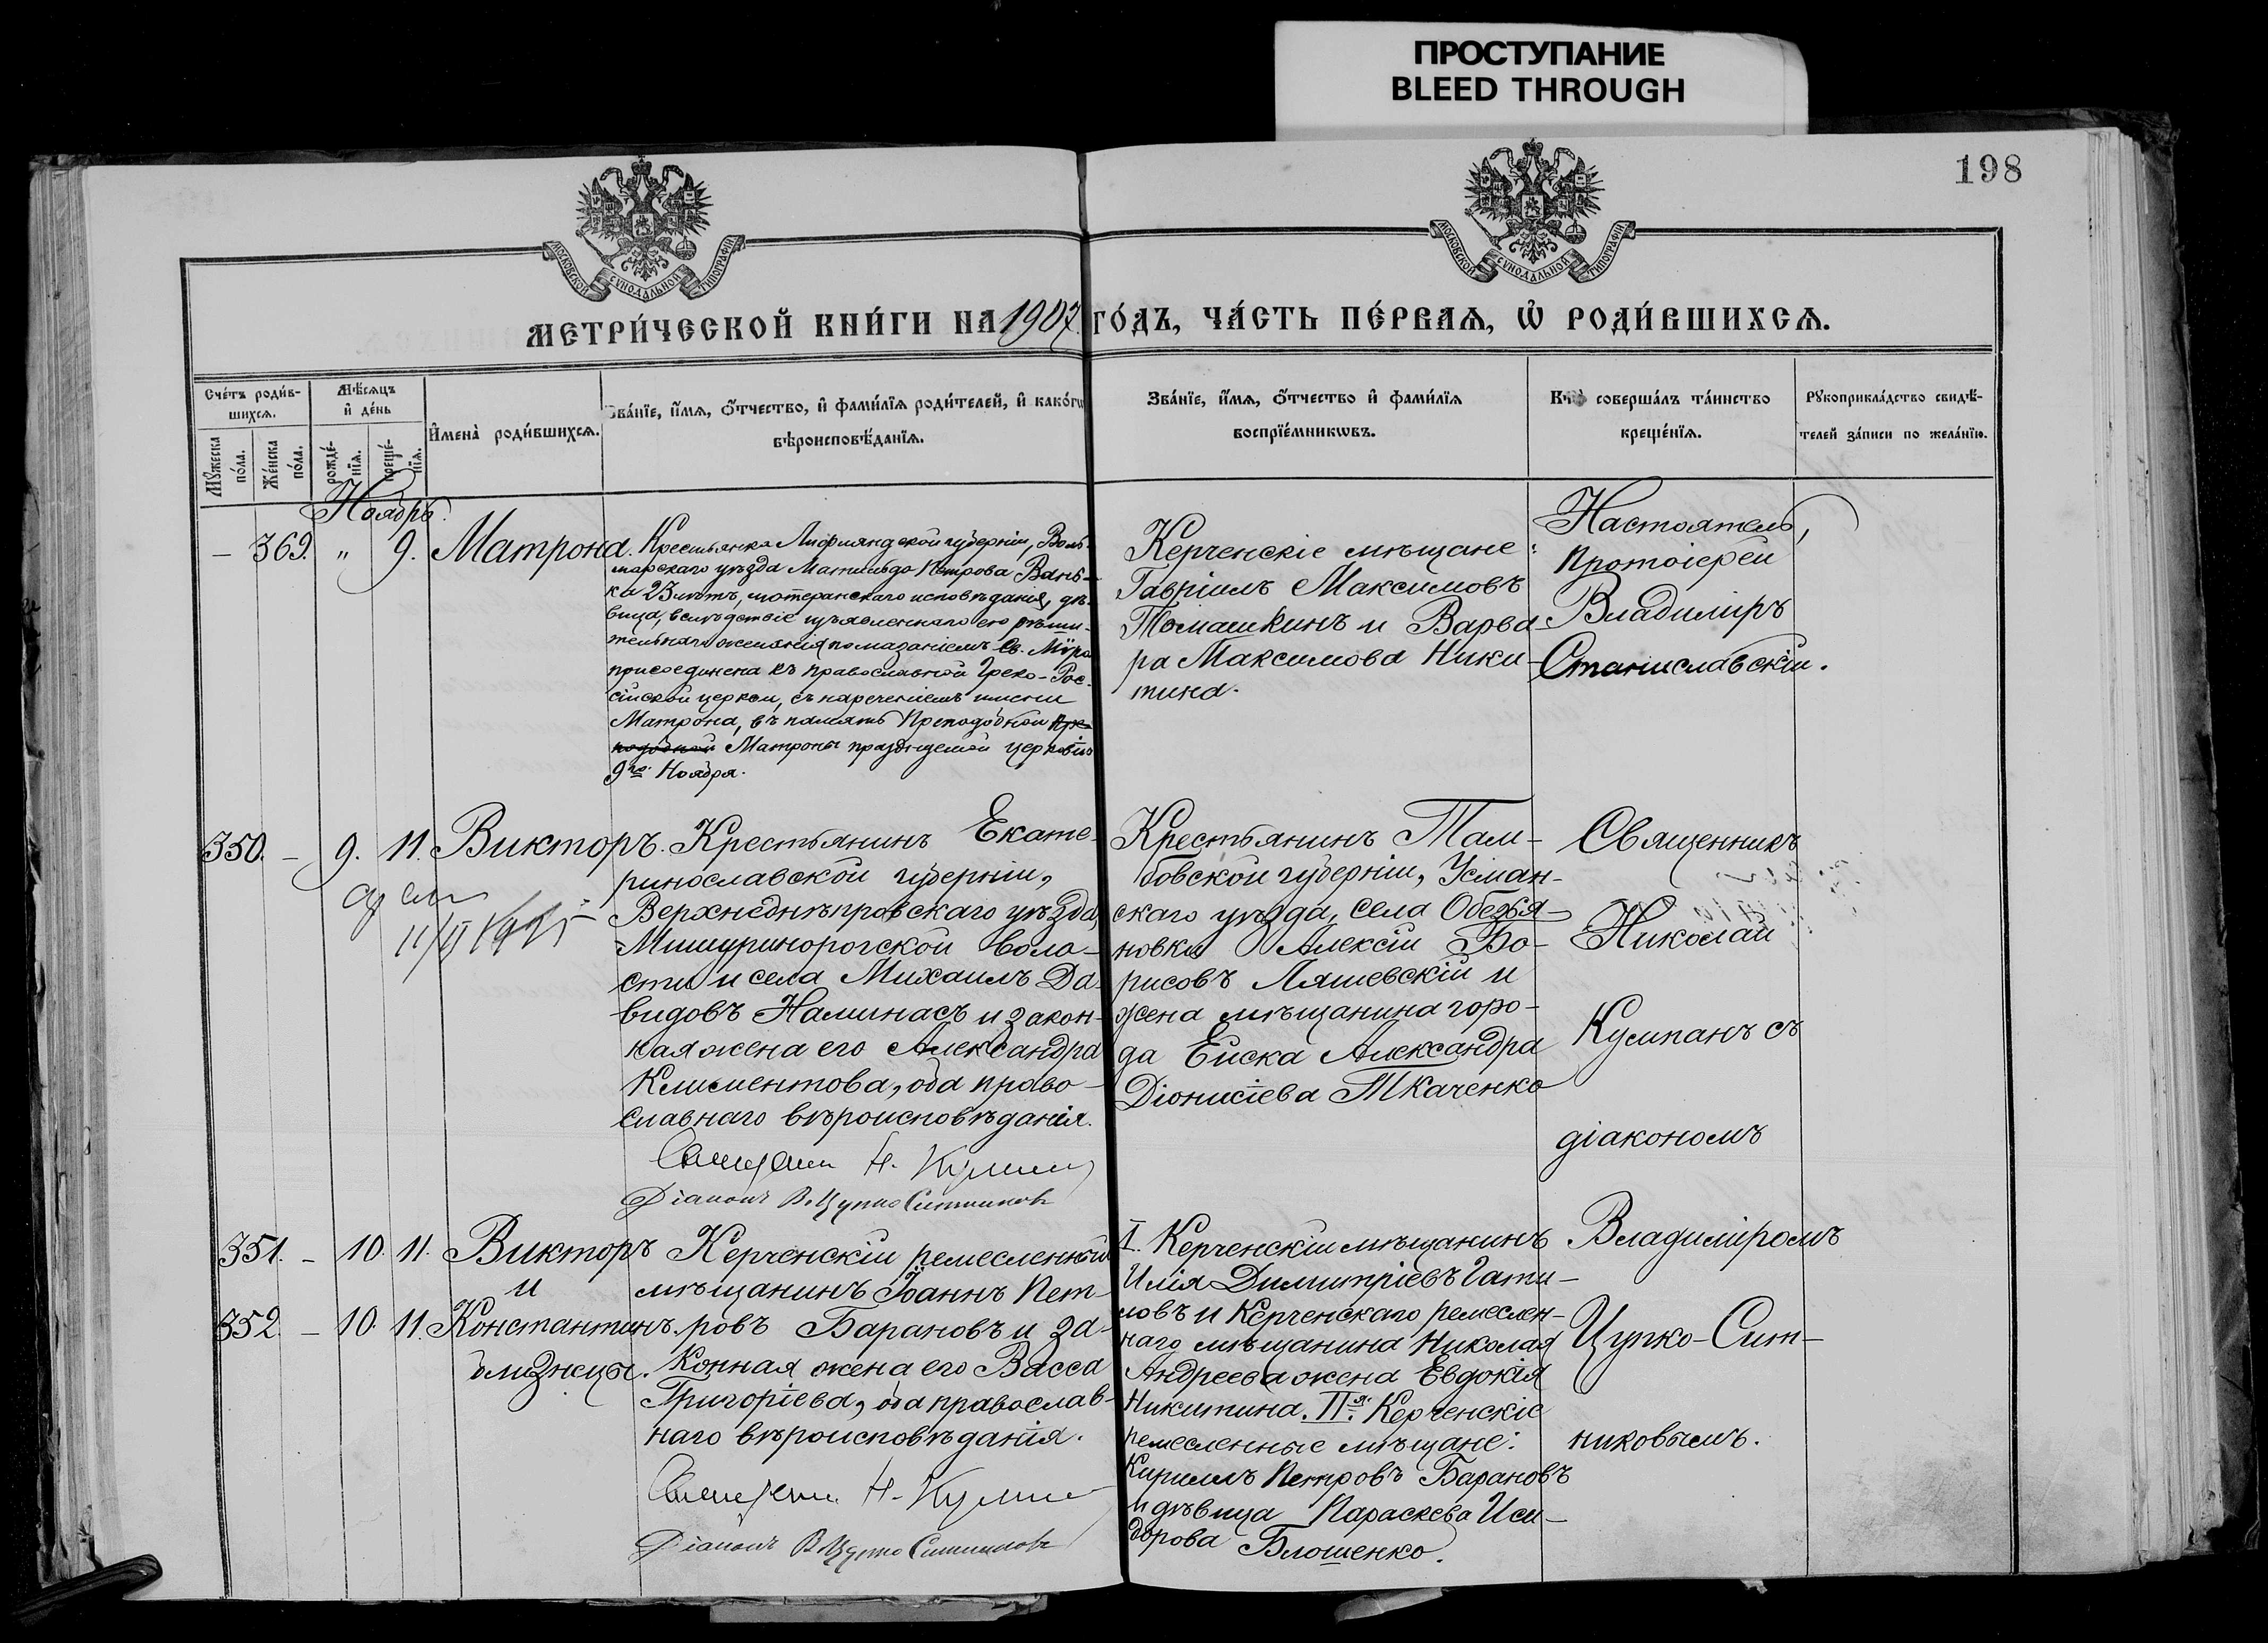 ПРОСТУПАНИЕ
BLEED THROUGH
198
МОСКОВСКОЙ СѴНОДАЛЬНОЙ ТИПОГРАФІИ
МОСКОВСКОЙ СѴНОДАЛЬНОЙ ТИПОГРАФІИ
МЕТРИ́ЧЕСКОЙ КНИ́ГИ НА 1907 ГО́ДЪ, ЧА́СТЬ ПЕ́РВАѦ, Ѡ҆ РОДИ́ВШИХСѦ.
Сче́тъ роди́в-
шихсѧ.
Мꙋ́жеска
по́ла.
Же́нска
по́ла.
Мѣ́сѧцъ
и҆ де́нь
рожде́-
нїѧ.
креще́-
нїѧ.
И҆мена̀ роди́вшихсѧ.
Зва́нїе, и҆́мѧ, ѻ҆́тчество, и҆ фами́лїѧ роди́телей, и҆ како́гѡ
вѣроисповѣ́данїѧ.
Зва́нїе, и҆́мѧ, ѻ҆́тчество и҆ фами́лїѧ
воспрїе́мникѡвъ.
Кто̀ соверша́лъ та́инство
креще́нїѧ.
Рꙋкоприкла́дство свидѣ́-
телей за́писи по жела́нїю.
Ноябрь.
– 369. „ 9. Матрона.
Крестьянка Лифляндской губерніи, Воль-
марскаго уѣзда Матильда Петрова Вань-
ка 23 лѣтъ, лютеранскаго исповѣданія, дѣ-
вица, вслѣдствіе изъявленнаго ею рѣши-
тельнаго желанія помазаніемъ Св. Мѵра
присоединена къ православной Греко-Рос-
сійской церкви, съ нареченіемъ имени
Матрона, въ память Преподобной Пре-
подобной Матроны празднуемой церковію
9го Ноября.
Керченскіе мѣщане:
Гавріилъ Максимовъ
Томашкинъ и Варва-
ра Максимова Ники-
тина.
Настоятель,
Протоіерей
Владиміръ
Станиславскій.
350. – 9. 11. Викторъ.
Крестьянинъ Екате-
ринославской губерніи,
Верхнеднѣпровскаго уѣзда,
Мишуринорогской воло-
сти и села Михаилъ Да-
видовъ Наминасъ и закон-
ная жена его Александра
Климентова, оба право-
славнаго вѣроисповѣданія.
Священникъ Н. Кумпанъ
Діаконъ В. Цупко Ситниковъ
Крестьянинъ Там-
бовской губерніи, Усман-
скаго уѣзда, села Обезья-
новки Алексій Бо-
рисовъ Ляшевскій и
жена мѣщанина горо-
да Ейска Александра
Діонисіева Ткаченко
Священникъ
Николай
Кумпанъ съ
діакономъ
Владиміромъ
Цупко-Сит-
никовымъ.
351. – 10. 11. Викторъ
и
352. – 10. 11. Константинъ.
близнецы.
Керченскій ремесленный
мѣщанинъ Іоаннъ Пет-
ровъ Барановъ и за-
конная жена его Васса
Григоріева, оба православ-
наго вѣроисповѣданія.
Священникъ Н. Кумпанъ
Діаконъ В. Цупко Ситниковъ
I. Керченскій мѣщанинъ
Илія Димитріевъ Гати-
ловъ и Керченскаго ремеслен-
наго мѣщанина Николая
Андреева жена Евдокія
Никитина. IIя. Керченскіе
ремесленные мѣщане:
Кириллъ Петровъ Барановъ
и дѣвица Параскева Иси-
дорова Блошенко.